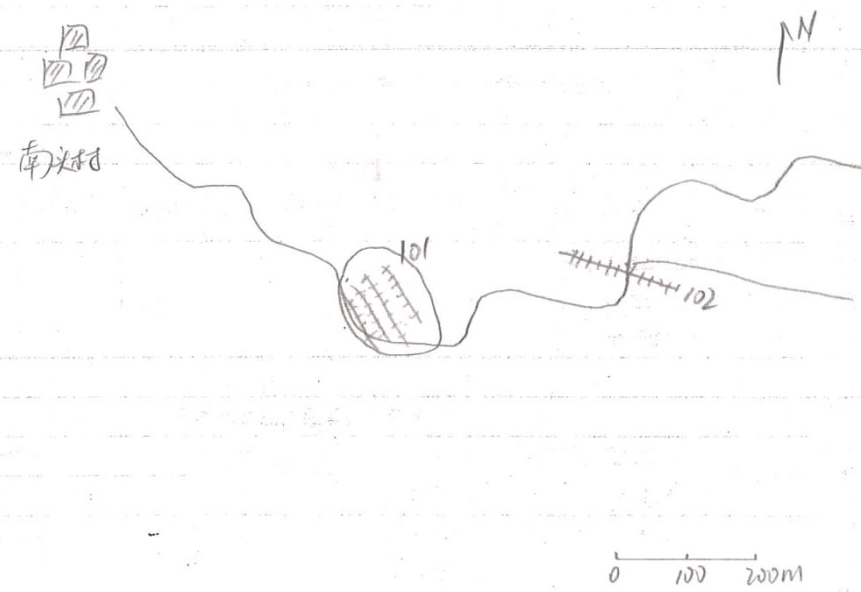 N
南头村
101
102
0 100 200m